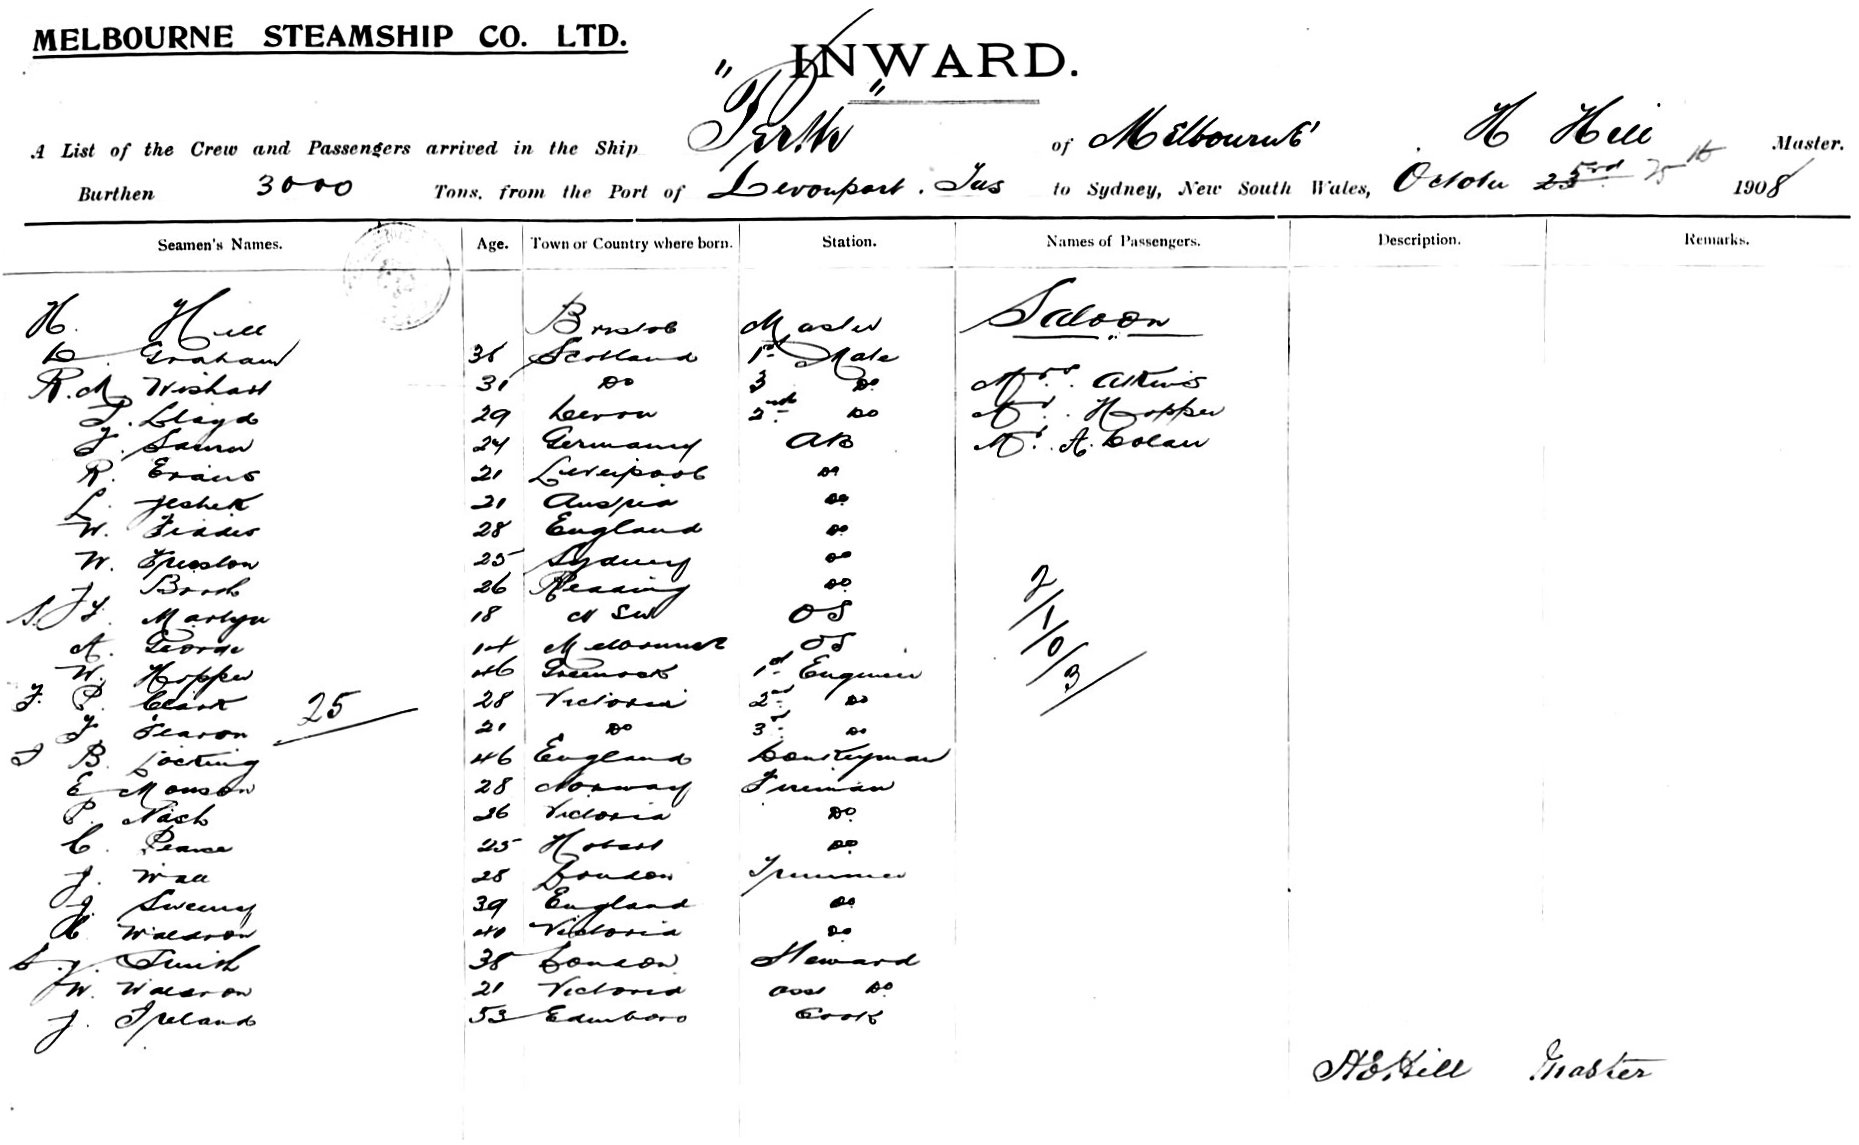 MELBOURNE STEAMSHIP CO. LTD.
INWARD.
A List of the Crew and Passengers arrived in the Ship "Perth" of Melbourne H Hill Master.
Burthen 3000 Tons, from the Port of Devonport. Tas to Sydney, New South Wales, October 1908
Seamen's Names. Age. Town or Country where born. Station. Names of Passengers. Description. Remarks.
H. Hill Bristol Master Saloon
D. Graham 38 Scotland 1st Mate
R. M. Wishart 31 Do 3 Do Mrs. Atkins
Lloyd 29 Devon 2nd Do Mr. Hopper
24 Germany AB Mr. A. Dolan
R. Evans 21 Liverpool Do
L. 21 Austria Do
W. 28 England Do
W. Preston 25 Sydney Do
26 Reading Do
Martyn 18 N S W O S
A. George Melbourne O S
W. Hopper 46 Greenock 1st Engineer
F. P. Clark 28 Victoria 2nd Do
25
F. Fearon 21 Do 3rd Do
B. 46 England Donkeyman
E Monson 28 Norway Fireman
P. Nash 26 Victoria Do
C. Pearce 25 Hobart Do
J. Wall 28 London Trimmer
J. Sweeny 39 England Do
Waldron 40 Victoria Do
S. J. Smith 38 London Steward
W. Waldron 21 Victoria asst Do
J. Ireland 53 Edinboro Cook
2/1/0/3/
H E Hill Master